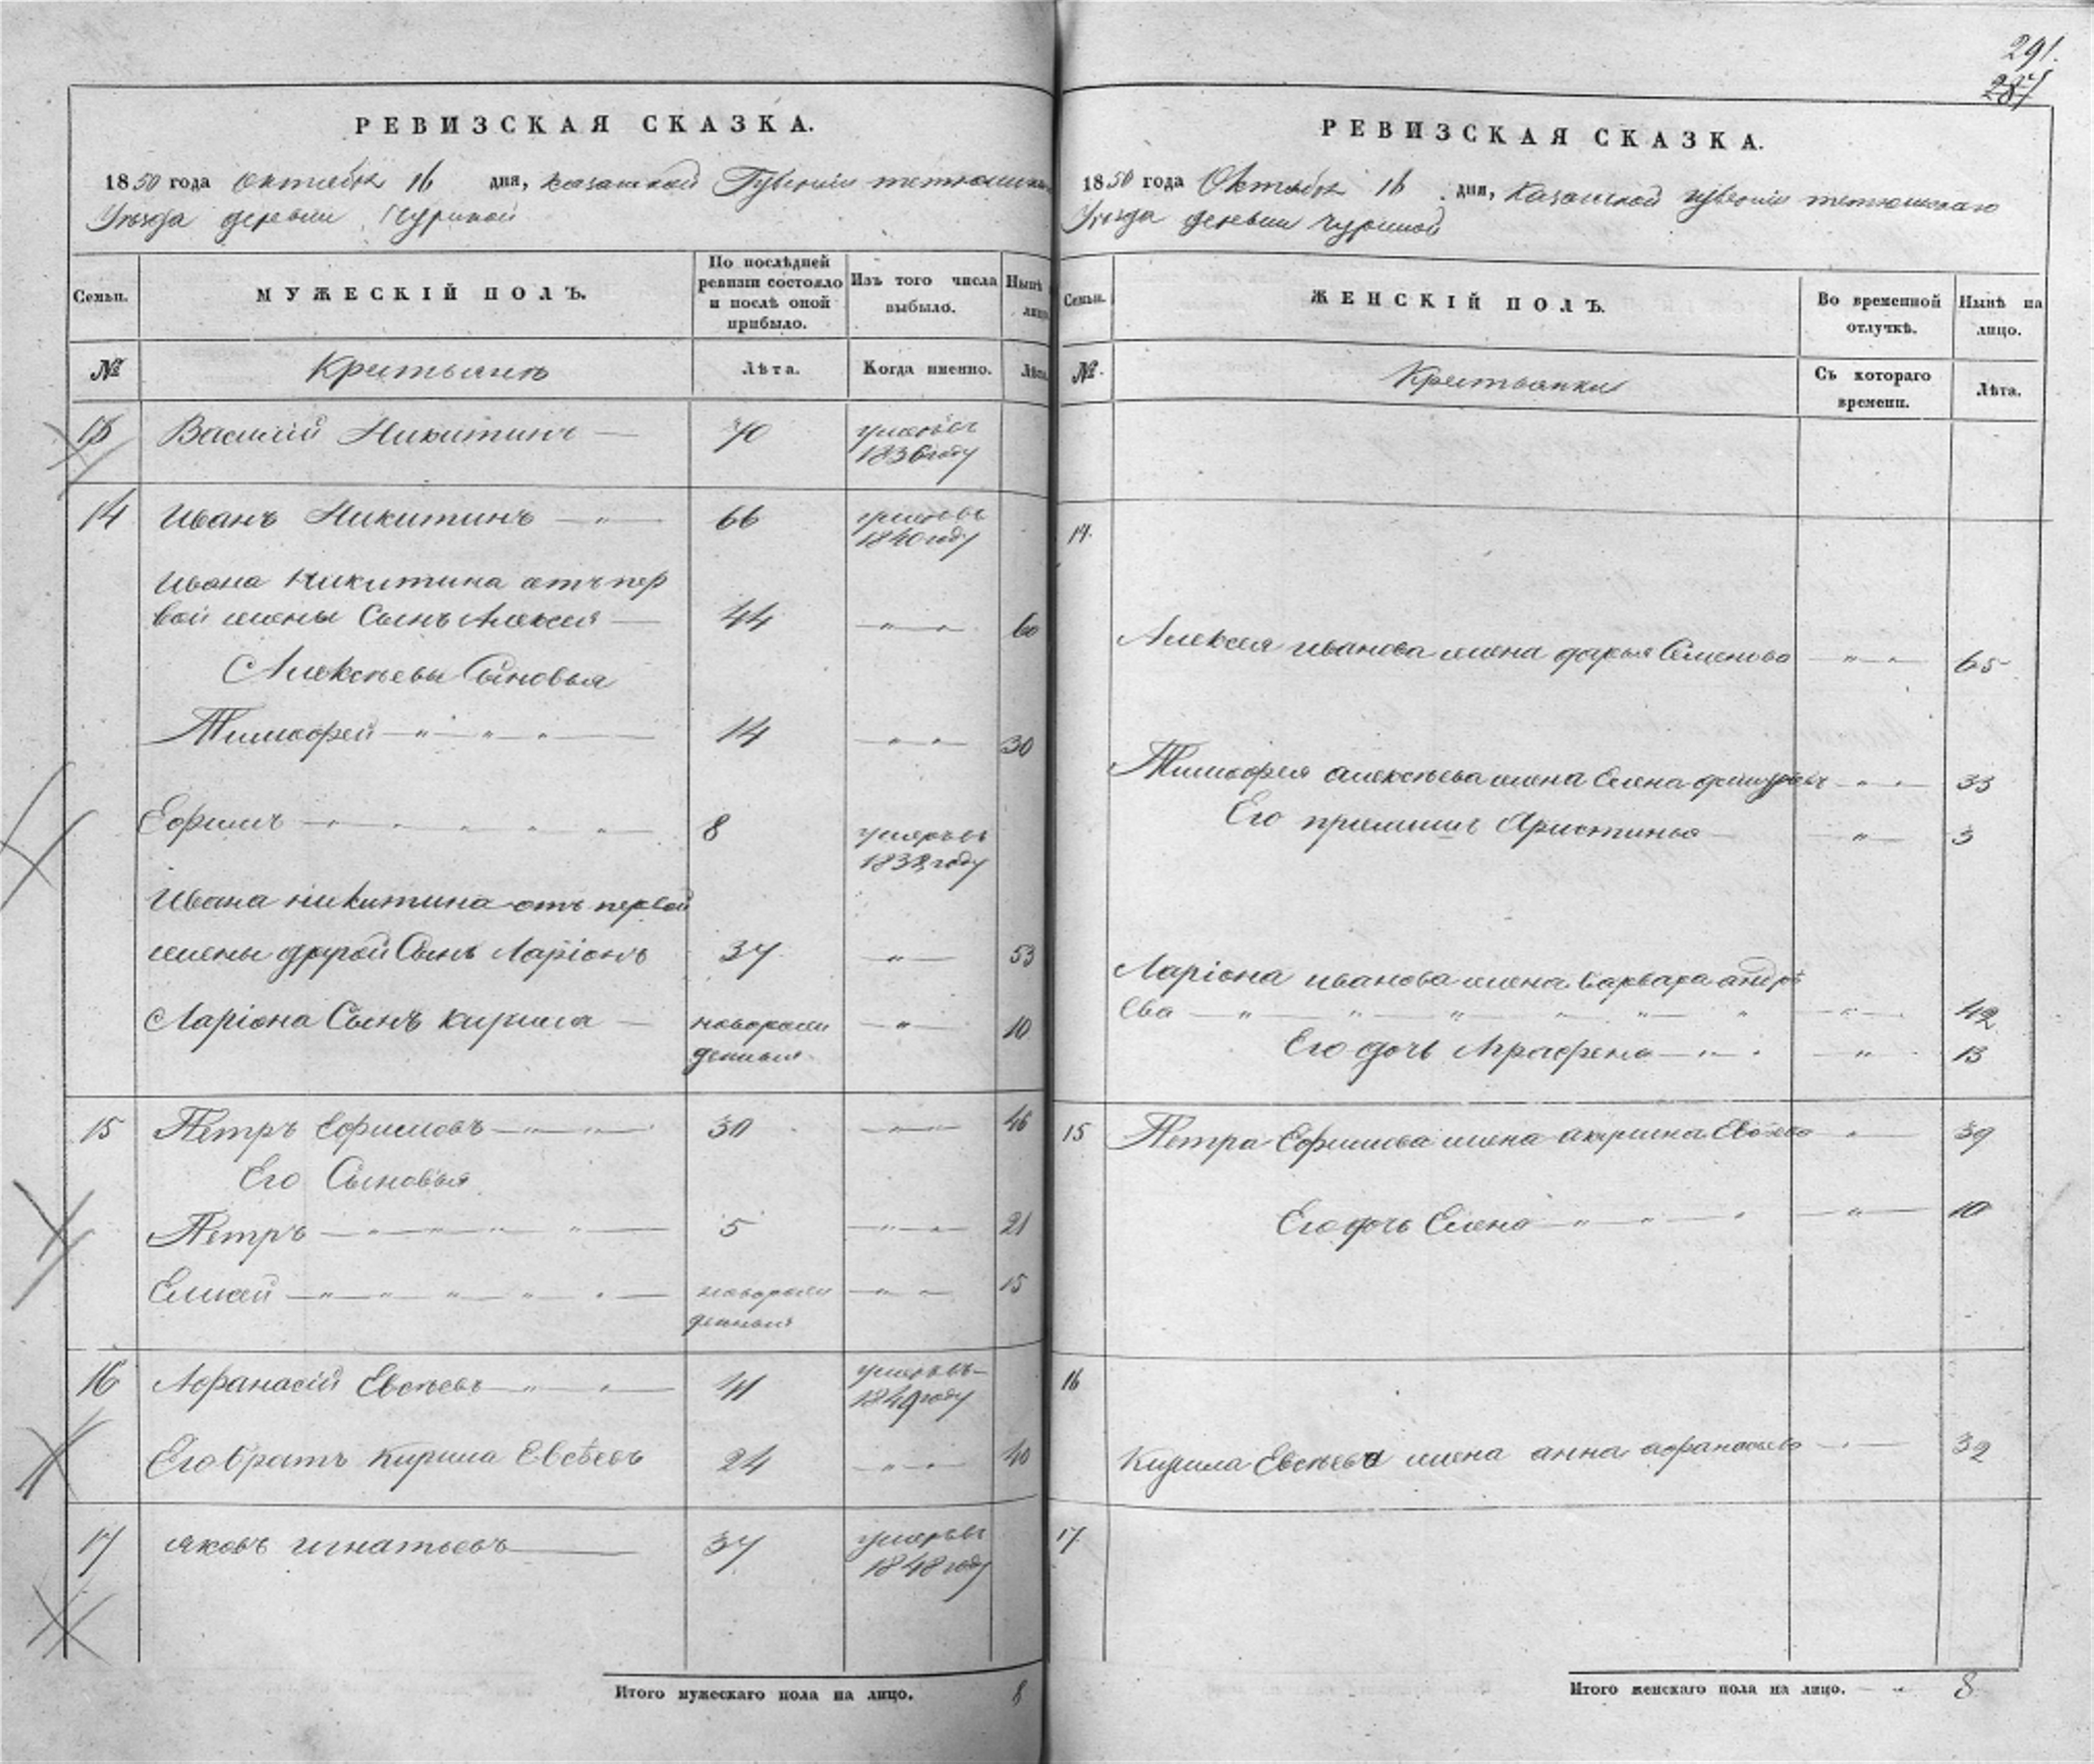 291.
287
РЕВИЗСКАЯ СКАЗКА.
1850 года Октября 16 дня, Казанской Губернии тетюшскаго
Уезда деревни Чуриной
Семьи.
МУЖЕСКІЙ ПОЛЪ.
По послѣдней ревизіи состояло и послѣ оной прибыло.
Изъ того числа выбыло.
Нынѣ на лицо.
№
Крестьяне
Лѣта.
Когда именно.
Лѣта.
13 Василий Никитинъ — 70 умеръ въ
1836 году
14 Иванъ Никитинъ — " — 66 умеръ въ
1840 году
Ивана Никитина отъ пер
вой жены Сынъ Алексей — 44 — " — " — 60
Алексеевы Сыновья
Тимофей — " — " — " — 14 — " — " — 30
Ефимъ — " — " — " — " — " — 8 умеръ въ
1838 году
Ивана никитина отъ первой
жены другой Сынъ Ларіонъ 37 — " — 53
Ларіона Сынъ кирила — новорож — " — 10
денный
15 Петръ Ефимовъ — " — " — 30 — " — " — 46
Его Сыновья
Петръ — " — " — " — " — 5 — " — " — 21
Елисей — " — " — " — " — " — новорож — " — " — 15
денный
16 Афанасій Евсѣевъ — " — " — 41 умеръ въ
1849 году
Его братъ Кирила Евсѣевъ 24 — " — " — 40
17 яковъ игнатьевъ — 37 умеръ въ
1848 году
Итого мужескаго пола на лицо. 8
РЕВИЗСКАЯ СКАЗКА.
1850 года Октября 16 дня, Казанской губернии тетюшскаго
Уезда деревни Чуриной
Семьи.
ЖЕНСКІЙ ПОЛЪ.
Во временной отлучкѣ.
Нынѣ на лицо.
№.
Крестьянки
Съ котораго времени.
Лѣта.
14.
Алексея иванова жена дарья Семенова — " — " — 65
Тимофея алексѣева жена Елена — " — " — 33
Его Аристинья — " — 3
Ларіона иванова жена варвара андре
ева — " — " — " — " — " — " — " — 42
Его дочь Аграфена — " — " — " — 13
15 Петра Ефимова жена акулина — " — 39
Его дочь Елена — " — " — " — " — 10
16
Кирила Евсѣева жена анна афанасьева — " — 32
17.
Итого женскаго пола на лицо. — " — 8